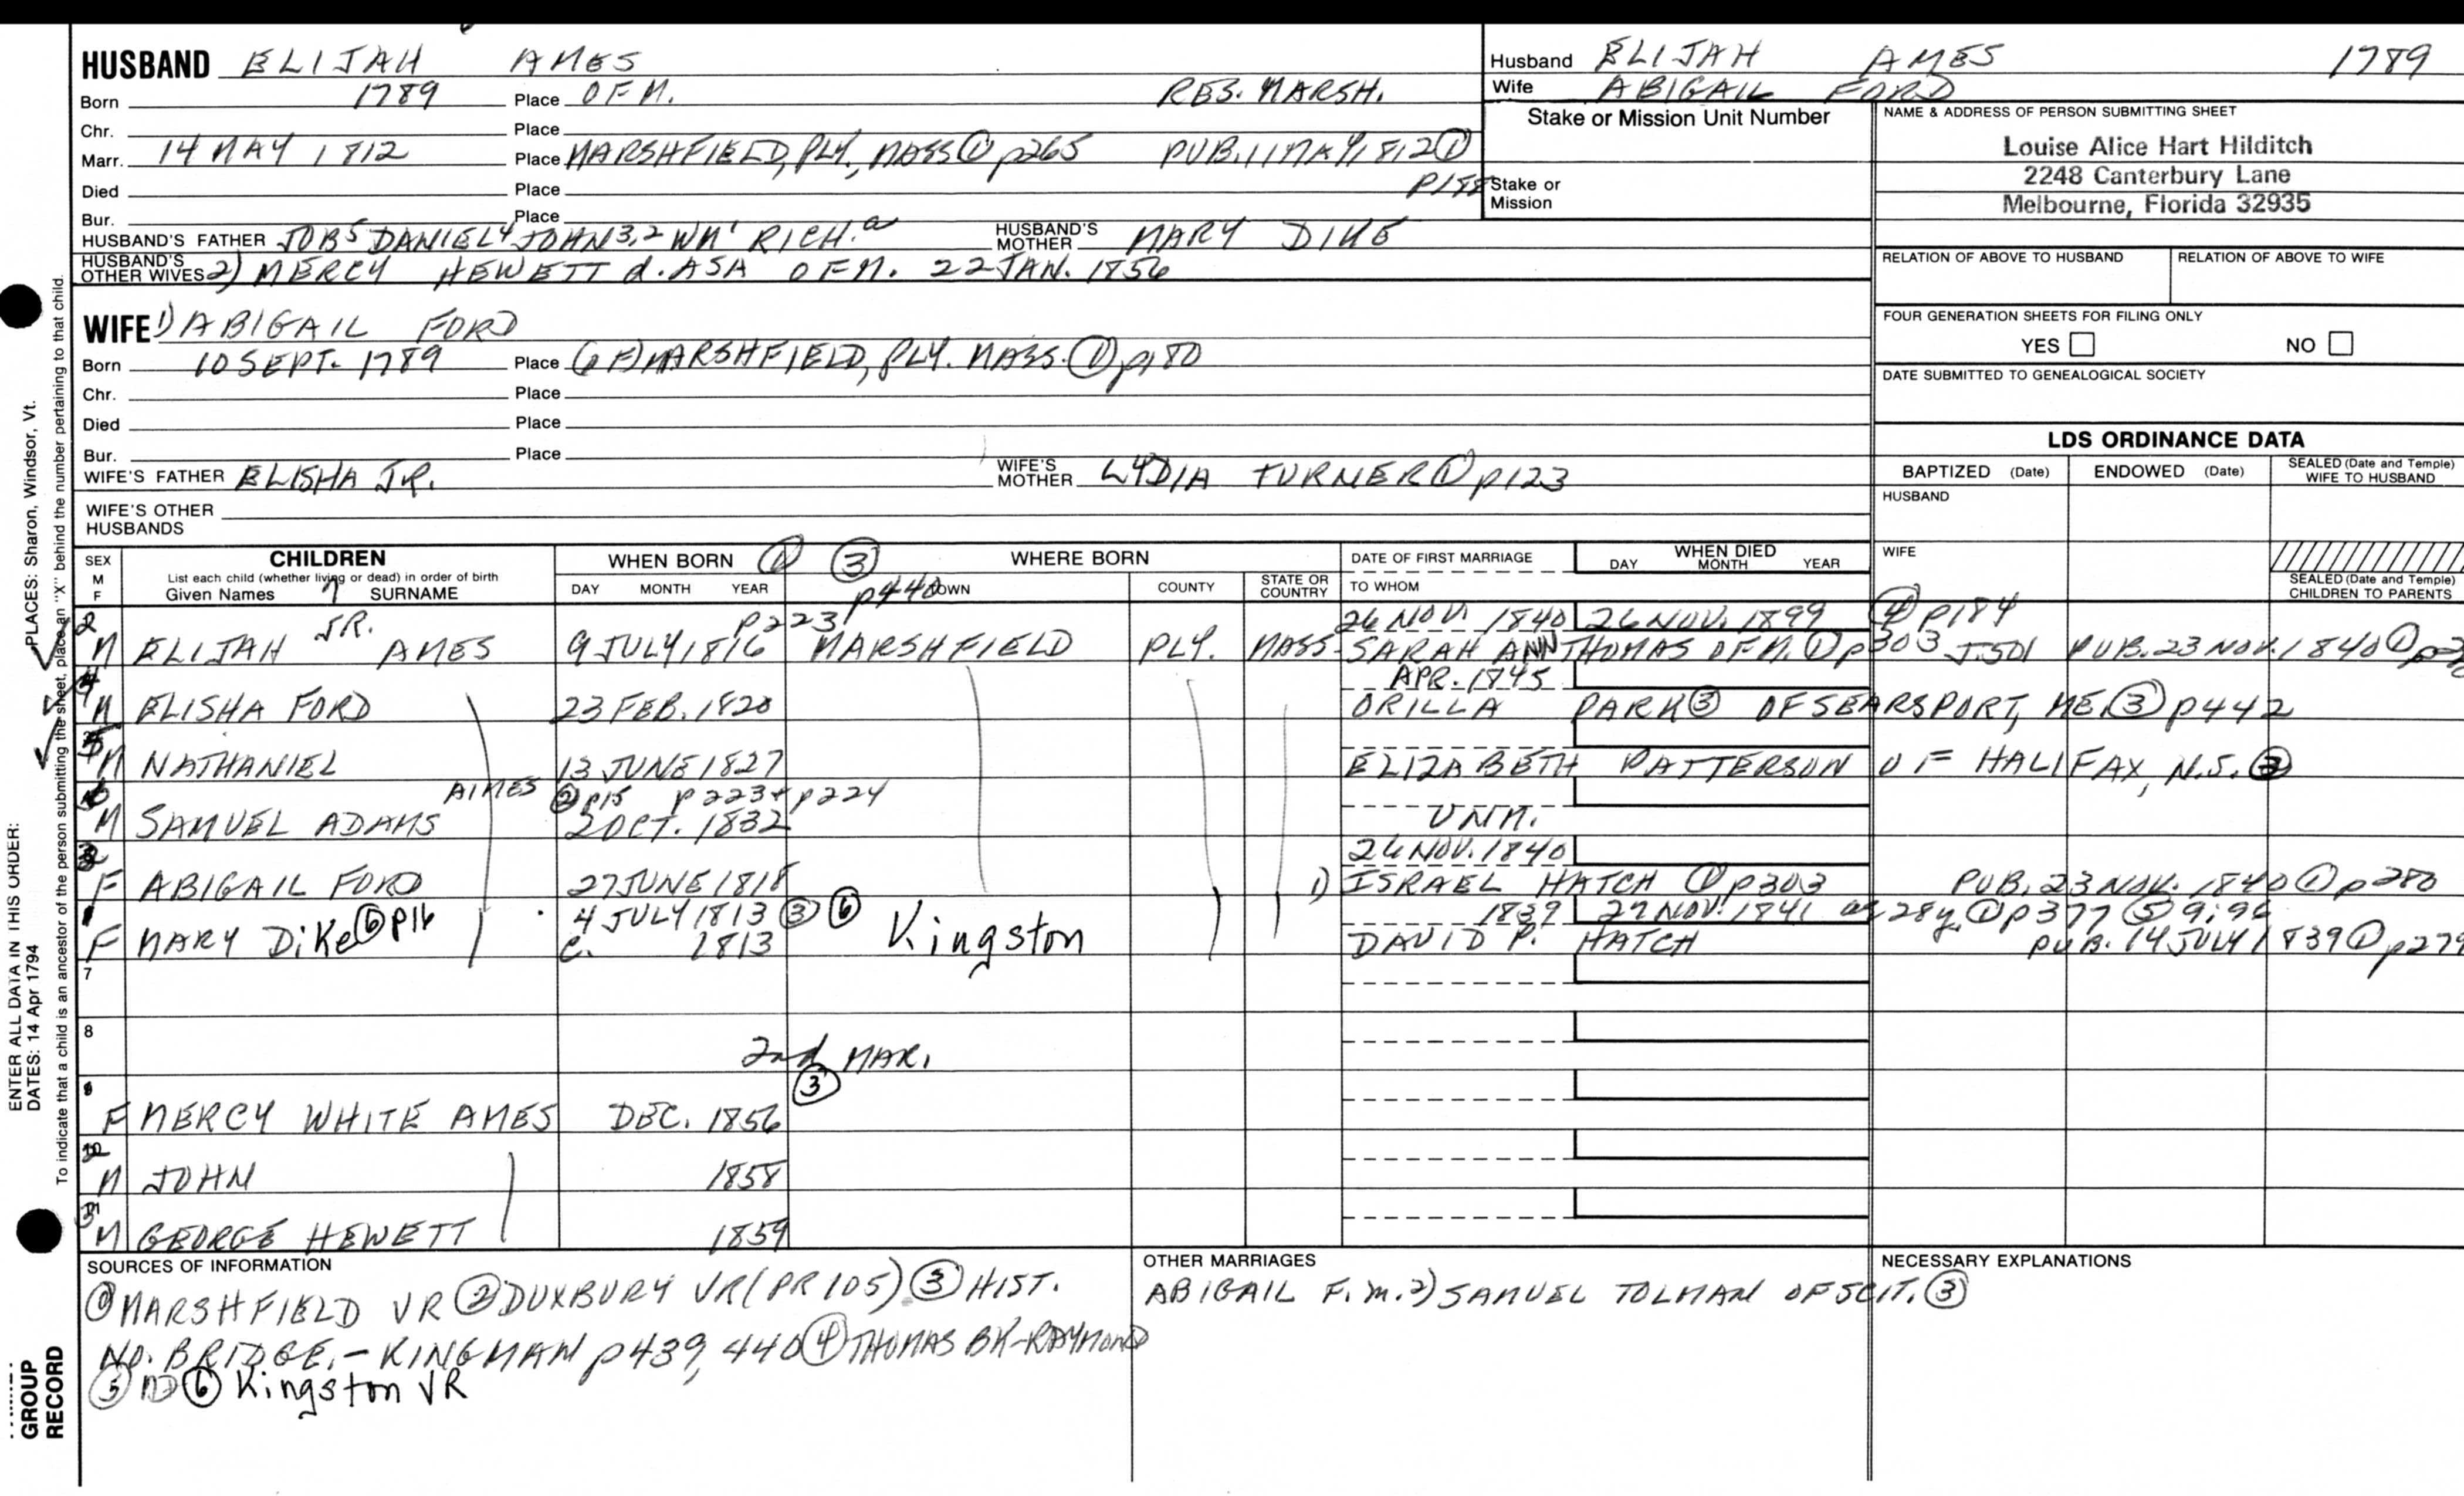 HUSBAND ELIJAH AMES
Born 1789 Place OF M. RES. MARSH.
Chr. Place
Marr. 14 MAY 1812 Place MARSHFIELD, PLY, MASS ① p265 PUB. 11 MAY 1812 ①
Died Place p188
Bur. Place
HUSBAND'S FATHER JOB5 DANIEL4 JOHN3,2 WM1 RICH.a HUSBAND'S MOTHER MARY DIKE
HUSBAND'S OTHER WIVES 2) MERCY HEWETT d. ASA OF M. 22 JAN. 1856
WIFE 1) ABIGAIL FORD
Born 10 SEPT. 1789 Place (6 F) MARSHFIELD, PLY. MASS. ① p180
Chr. Place
Died Place
Bur. Place
WIFE'S FATHER ELISHA JR. WIFE'S MOTHER LYDIA TURNER ① p123
WIFE'S OTHER HUSBANDS
Husband ELIJAH AMES 1789
Wife ABIGAIL FORD
Stake or Mission Unit Number
Stake or Mission
NAME & ADDRESS OF PERSON SUBMITTING SHEET
Louise Alice Hart Hilditch
2248 Canterbury Lane
Melbourne, Florida 32935
RELATION OF ABOVE TO HUSBAND RELATION OF ABOVE TO WIFE
FOUR GENERATION SHEETS FOR FILING ONLY
YES NO
DATE SUBMITTED TO GENEALOGICAL SOCIETY
LDS ORDINANCE DATA
BAPTIZED (Date) ENDOWED (Date) SEALED (Date and Temple) WIFE TO HUSBAND
HUSBAND
WIFE
SEALED (Date and Temple) CHILDREN TO PARENTS
SEX M F CHILDREN WHEN BORN ① ③ WHERE BORN DATE OF FIRST MARRIAGE WHEN DIED
List each child (whether living or dead) in order of birth
Given Names SURNAME DAY MONTH YEAR p440 TOWN COUNTY STATE OR COUNTRY TO WHOM DAY MONTH YEAR
2 JR. p223 26 NOV. 1840 26 NOV. 1899 ④ p184
M ELIJAH AMES 9 JULY 1816 MARSHFIELD PLY. MASS. SARAH ANN THOMAS OF M. ① p303 J501 PUB. 23 NOV. 1840 ①
4 APR. 1845
M ELISHA FORD 23 FEB. 1820 ORILLA PARK ③ OF SEARSPORT, ME. ③ p442
5
M NATHANIEL 13 JUNE 1827 ELIZABETH PATTERSON OF HALIFAX, N.S. ③
AIMES ② p15 p223 + p224
M SAMUEL ADAMS 2 OCT. 1832 UNM.
3 26 NOV. 1840
F ABIGAIL FORD 27 JUNE 1818 1) ISRAEL HATCH ① p303 PUB. 23 NOV. 1840 ① p280
1 4 JULY 1813 ③ ⑥ 1839 27 NOV. 1841 ae 28y. ① p377 ⑤ 9:96
F MARY DiKe ⑥ p16 c. 1813 Kingston DAVID P. HATCH PUB. 14 JULY 1839 ① p279
7
8
2nd MAR.
③
F MERCY WHITE AMES DEC. 1856
M JOHN 1858
M GEORGE HEWETT 1859
SOURCES OF INFORMATION
① MARSHFIELD VR ② DUXBURY VR (PR 105) ③ HIST.
NO. BRIDGE. - KINGMAN p439, 440 ④ THOMAS BK - RAYMOND
⑤ MD ⑥ Kingston VR
OTHER MARRIAGES
ABIGAIL F. m. 2) SAMUEL TOLMAN OF SCIT. ③
NECESSARY EXPLANATIONS
ENTER ALL DATA IN THIS ORDER:
DATES: 14 Apr 1794
PLACES: Sharon, Windsor, Vt.
To indicate that a child is an ancestor of the person submitting the sheet, place an "X" behind the number pertaining to that child.
GROUP
RECORD